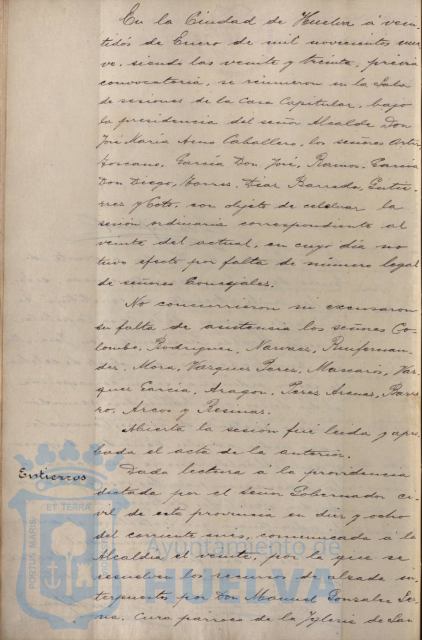 En la Ciudad de Huelva á vein-
tidós de Enero de mil novecientos nue-
ve, siendo las veinte y treinta, previa
convocatoria, se reunieron en la Sala
de sesiones de la Casa Capitular, bajo
la presidencia del señor Alcalde Don
José María Caballero, los señores
Toscano, García Don José, Ramos, García
Don Diego, Torres, Diaz Barreda, Gutie-
rrez y Coto, con objeto de celebrar la
sesión ordinaria correspondiente al
veinte del actual, en cuyo dia no
tuvo efecto por falta de número legal
de señores Concejales.
No concurrieron ni excusaron
su falta de asistencia los señores Co-
lombo, Rodriguez, Narvaez,
Mora, Vazquez Perez, Mascarós, Vaz-
quez García, Aragon, Perez
y
Abierta la sesión fué leida y apro-
bada el acta de la anterior.
Entierros
Dada lectura á la providencia
dictada por el señor Gobernador ci-
vil de esta provincia en diez y ocho
del corriente mes, comunicada á la
Alcaldía el veinte, por la que se
resuelven los recursos de alzada in-
terpuestos por Don Manuel Gonzalez Ser-
na, Cura parroco de la Iglesia de San
PORTUS MARIS ET TERRÆ
Ayuntamiento de
HUELVA